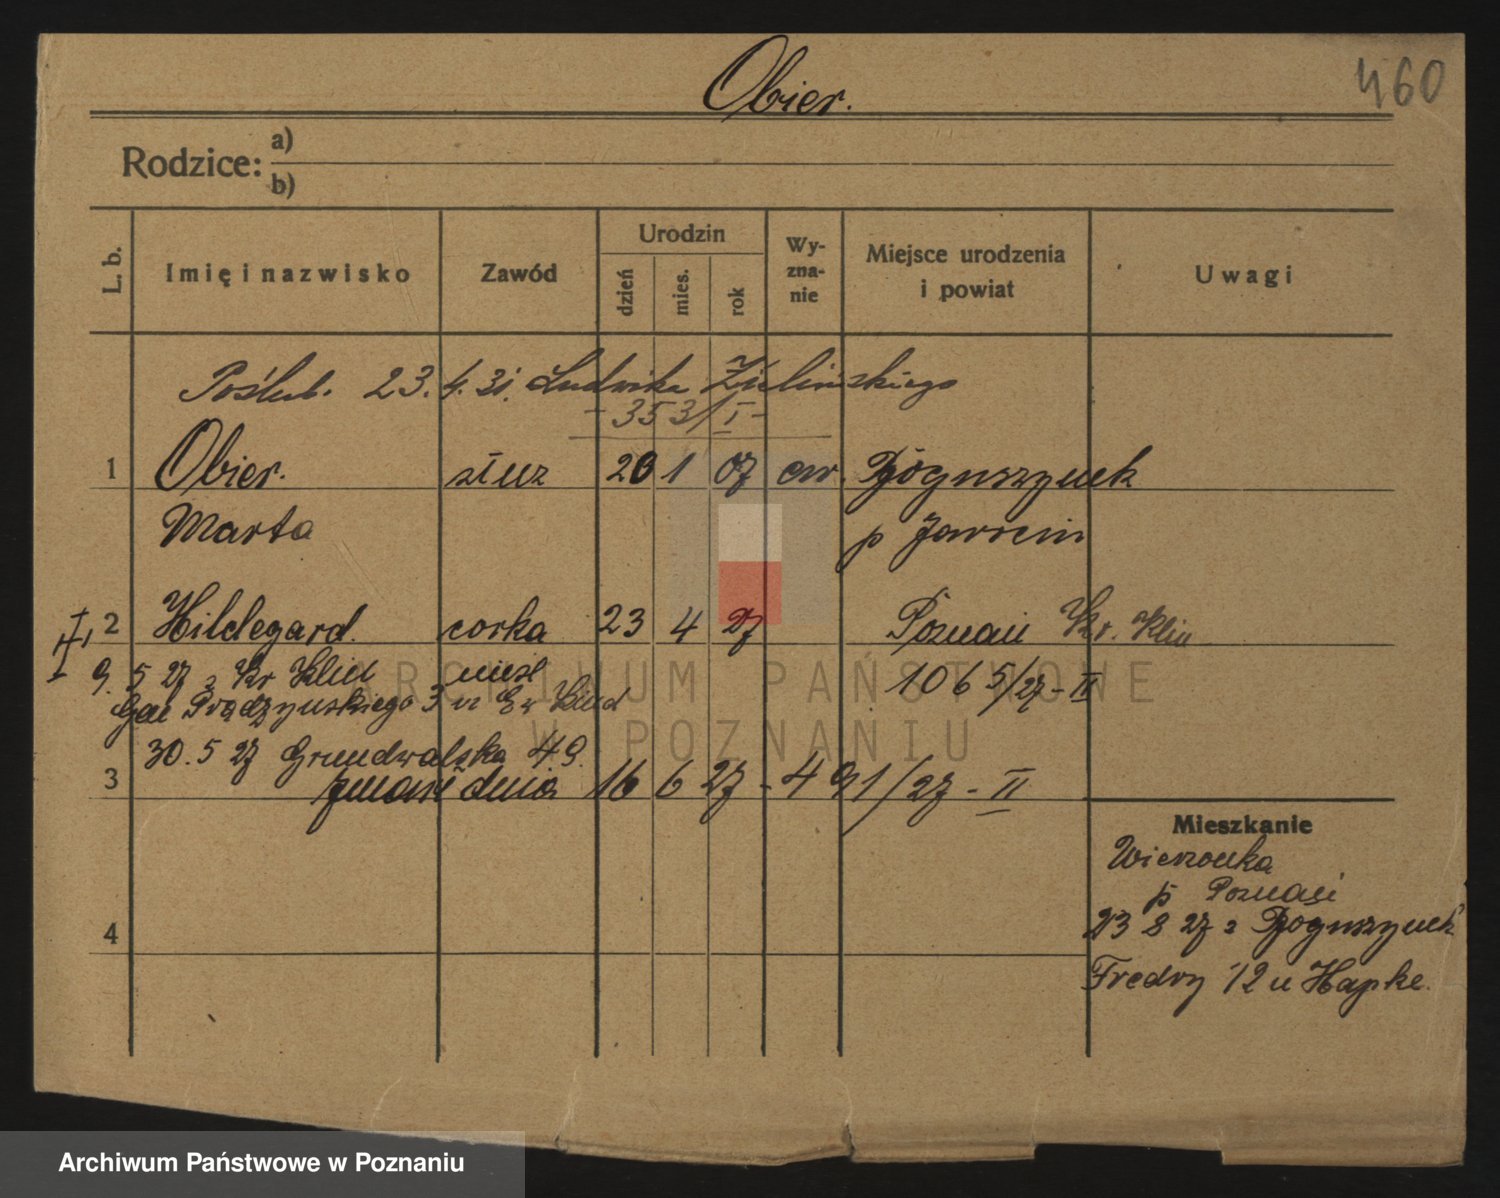 Obier.
460
Rodzice: a)
b)
L. b.
Imię i nazwisko
Zawód
Urodzin
dzień
mies.
rok
Wy-
zna-
nie
Miejsce urodzenia
i powiat
Uwagi
Poślub. 23.4.31. Ludwika Zielińskiego
- 353/I -
1 Obier. służ 20 1 07 ew. Boguszynek
Marta p Jarocin
2 Hildegard. corka 23 4 27 Poznań Kr. Klin
9. 5 27 z Kr Klin 1065/27 - II
Prądzyńskiego 3
30. 5 27 Grundwalska 49.
3 zmarł dnia 16 6 27 - 491/27 - II
Mieszkanie
Wierzonka
p Poznań
23 8 27 z Boguszynek
4
Fredry 12 u Hapke.
ARCHIWUM PAŃSTWOWE
W POZNANIU
Archiwum Państwowe w Poznaniu